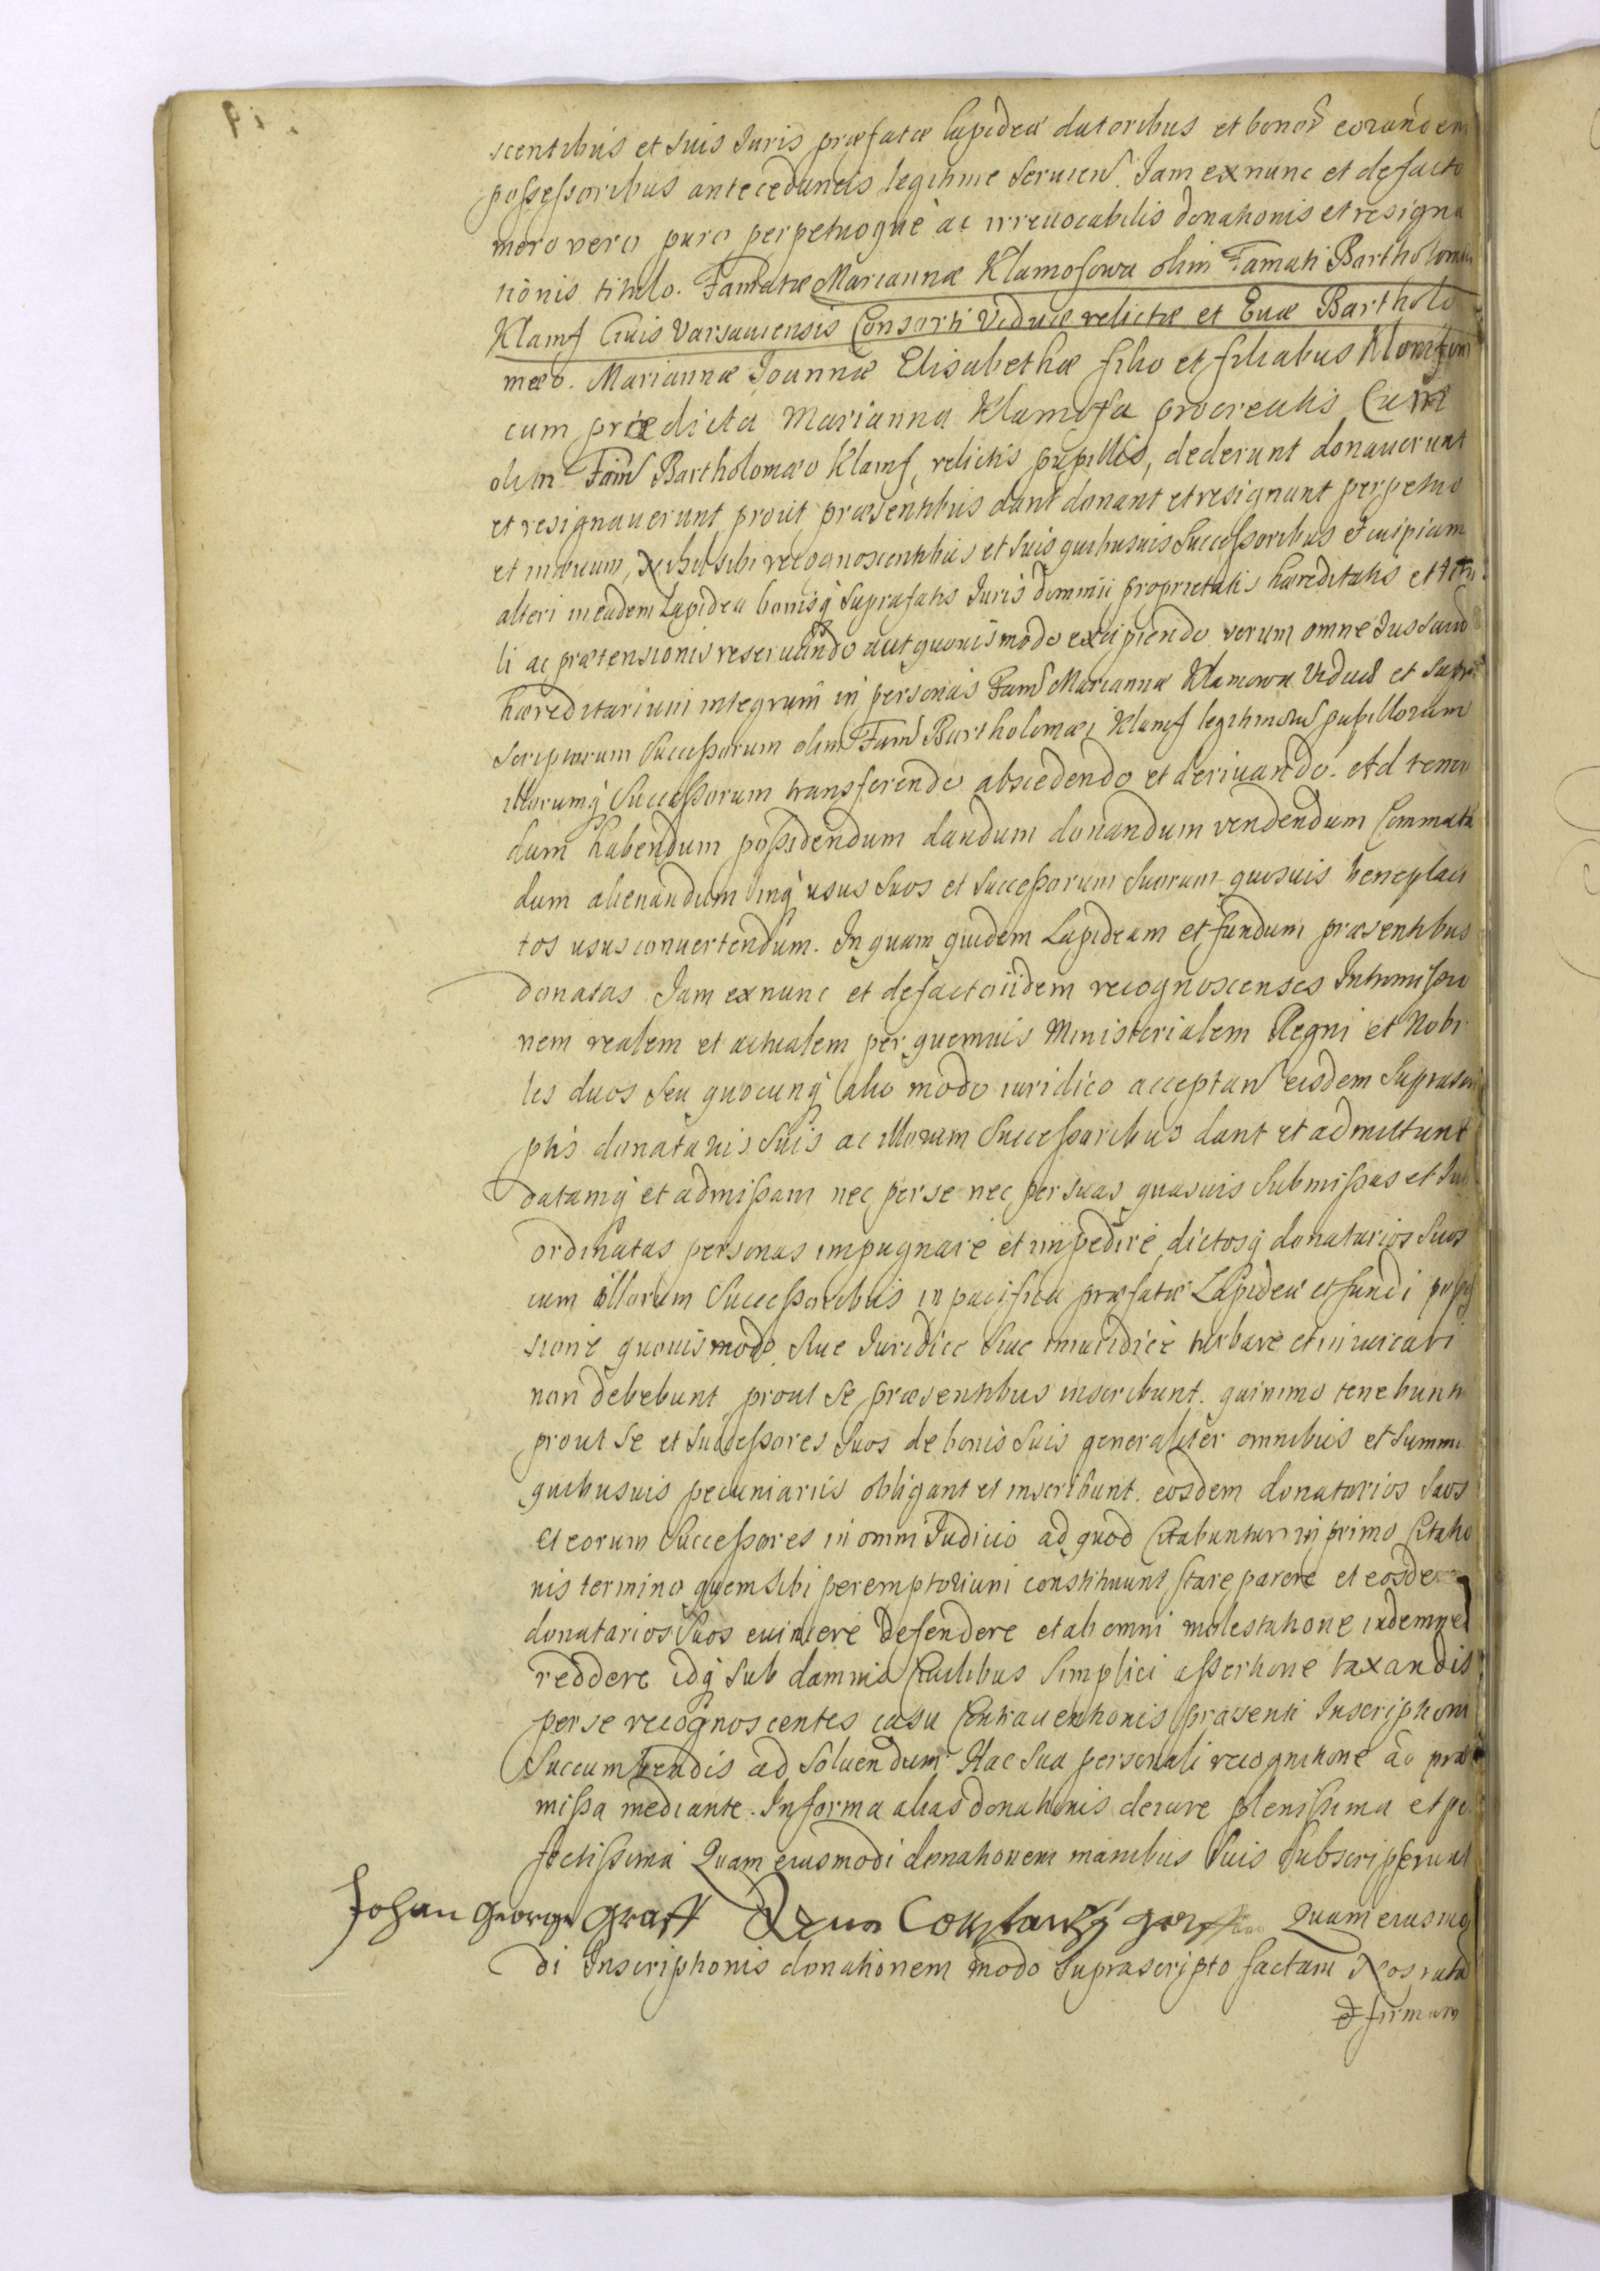 scentibus et suis Juris præfatæ lapideæ datoribus et bonor eorundem
possessoribus antecedaneis legitime seruien. Jam ex nunc et de facto
mero vero puro perpetuoque ac irreuocabilis donationis et resigna
tionis titulo. Famatæ Mariannæ Klamfowa olim Famati Bartholomæi
Klamf Ciuis Varsauiensis Consorti Viduæ relictæ et Euæ Bartholo
mæo. Mariannæ Joannæ Elisabethæ filio et filiabus Klamfom
cum prædicta Marianna Klamfa procreatis Cum
olim Fam Bartholomæo Klamf relictis pupillis, dederunt donauerunt
et resignauerunt, prout præsentibus dant donant et resignant perpetuo
et in æuum, Nihil sibi recognoscentibus et suis quibusuis Successoribus et cuipiam
alteri in eadem Lapidea bonisq suprafatis Juris dominii proprietatis hæreditatis et titu
li ac prætensionis reseruando aut quouis modo excipiendo verum omne Jus suum
hæreditarium integrum in personas Fam Mariannæ Klamfowa Viduæ et supra
scriptorum Successorum olim Fam Bartholomæi Klamf legitimorum pupillorum
illorumq Successorum transferendo abscedendo et deriuando. Ad tenen
dum habendum possidendum dandum donandum vendendum Commuta
dum alienandum inq usus suos et successorum suorum quosuis beneplaci
tos usus conuertendum. In quam quidem Lapideam et fundum præsentibus
donatas Jam ex nunc et de facto iidem recognoscentes Intromissio
nem realem et actualem per quemuis Ministerialem Regni et Nobi
les duos seu quocunq alio modo iuridico acceptan eisdem suprascri
ptis donatariis suis ac illorum Successoribus dant et admittunt
datamq et admissam nec per se nec per suas quasuis submissas et sub
ordinatas personas impugnare et impedire, dictosq donatarios suos
cum illorum Successoribus in pacifica præfatæ Lapideæ et fundi posses
sione quouis modo siue Juridice siue iniuridice turbare et iniuriari
non debebunt, prout se præsentibus inscribunt. quinimo tenebunt
prout se et successores suos de bonis suis generaliter omnibus et summi
quibusuis pecuniariis obligant et inscribunt. eosdem donatarios suos
et eorum Successores in omni Judicio ad quod Citabuntur in primo Citatio
nis termino quem sibi peremptorium constituunt stare parere et eosde
donatarios suos euincere defendere et ab omni molestatione indemnes
reddere idq sub damnis Culibus simplici assertione taxandis
per se recognoscentes casu Contrauentionis præsenti Inscriptioni
Succumbendis ad soluendum. Hac sua personali recognitione ac præ
missa mediante. In forma alias donationis de iure plenissima et per
fectissima Quam eiusmodi donationem manibus suis subscripserunt
Johan George Graff Constantzy Quam eiusmo
di Inscriptionis donationem modo suprascripto factam Nos rata
et firmam